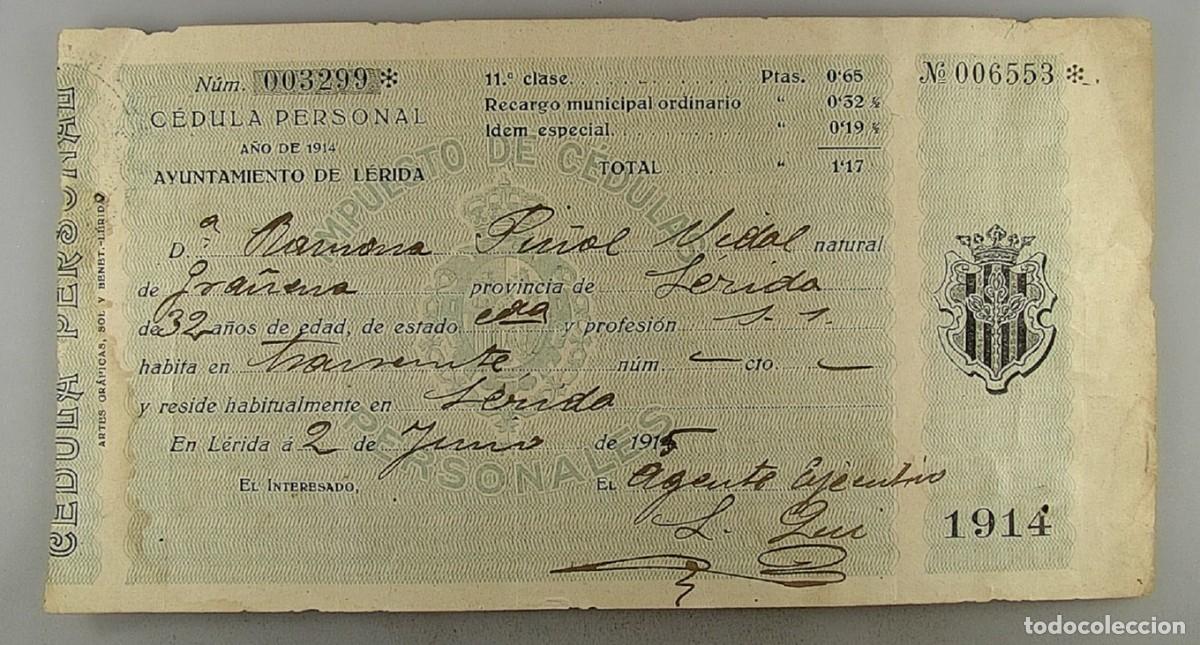 CÉDULA PERSONAL
ARTES GRÁFICAS, SOL Y BENET.-LÉRIDA
Núm. 003299 *
CÉDULA PERSONAL
AÑO DE 1914
AYUNTAMIENTO DE LÉRIDA
11.ª clase. Ptas. 0'65
Recargo municipal ordinario " 0'32 ½
Idem especial. " 0'19 ½
TOTAL " 1'17
Nº 006553 *
IMPUESTO DE CÉDULAS
PERSONALES
D.ª Ramona Piñol Vidal natural
de Grañena provincia de Lérida
de 32 años de edad, de estado cda y profesión s. s.
habita en transeunte núm. — cto. —
y reside habitualmente en Lérida
En Lérida á 2 de Junio de 1915
EL INTERESADO, EL Agente Ejecutivo
L.
1914
todocoleccion